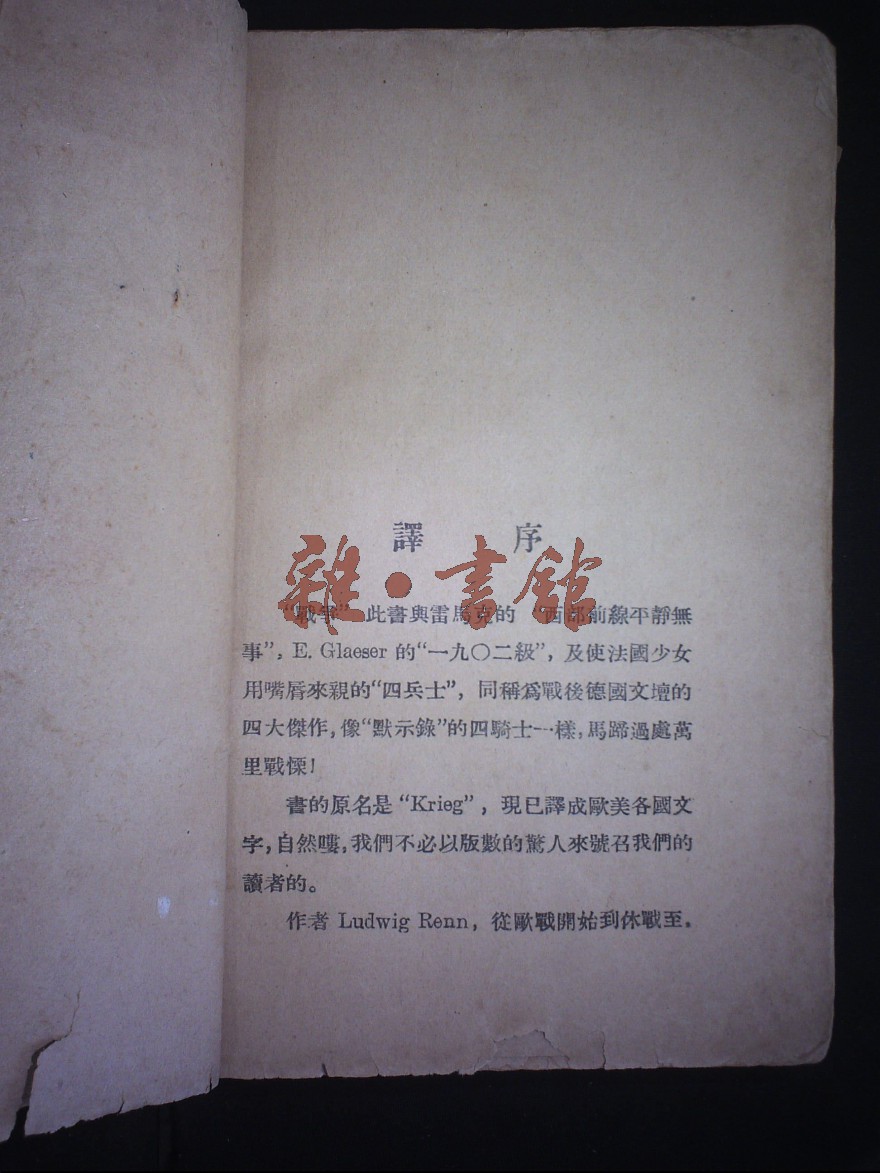 譯 序
雜·書館
“戰爭” 此書與雷馬克的 “西部前線平靜無
事”，E. Glaeser 的“一九〇二級”，及使法國少女
用嘴唇來親的“四兵士”，同稱爲戰後德國文壇的
四大傑作，像“默示錄”的四騎士一樣，馬蹄過處萬
里戰慄！
書的原名是 “Krieg”，現已譯成歐美各國文
字，自然嘍，我們不必以版數的驚人來號召我們的
讀者的。
作者 Ludwig Renn，從歐戰開始到休戰至，